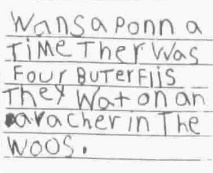 Wansa Ponn a
Time Ther Was
Four Buterfiis
They Wat on an
avacher in The
Woos.